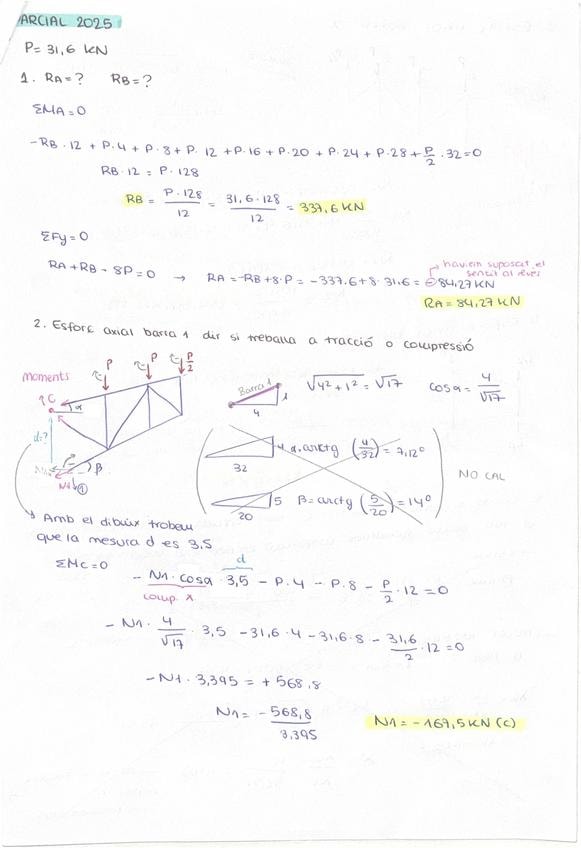 ARCIAL 2025
P= 31,6 KN
1. RA=? RB=?
ΣMA=0
-RB·12 + P·4 + P·8 + P·12 + P·16 + P·20 + P·24 + P·28 + P/2·32=0
RB·12 = P·128
RB = P·128/12 = 31,6·128/12 = 337,6 KN
ΣFy=0
havíem suposat el
sentit al revés
RA+RB-8P=0 → RA=-RB+8·P = -337.6+8·31.6= -84,27KN
RA=84,27KN
2. Esforç axial barra 1 dir si treballa a tracció o compressió
moments
P P P/2
C α
d=?
β
N1 1
Barra 1
4 1
√4²+1² = √17 cosα = 4/√17
32 4 α,arctg (4/32) = 7,12º
20 5 β=arctg (5/20) = 14º
NO CAL
Amb el dibuix trobem
que la mesura d es 3,5
ΣMc=0
d
- N1·cosα · 3,5 - P·4 - P·8 - P/2·12=0
comp. x
- N1· 4/√17 · 3,5 - 31,6·4 - 31,6·8 - 31,6/2·12=0
-N1·3,395 = +568,8
N1= -568,8/3,395
N1=-167,5KN (C)